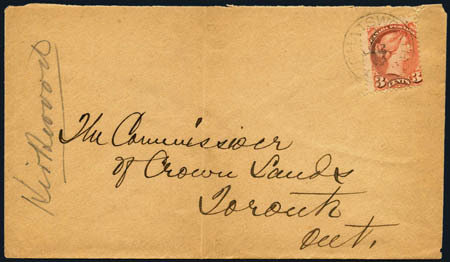 Kirkwood
The Commissioner
of Crown Lands
Toronto
Ont.
CANADA POSTAGE
3 CENTS 3